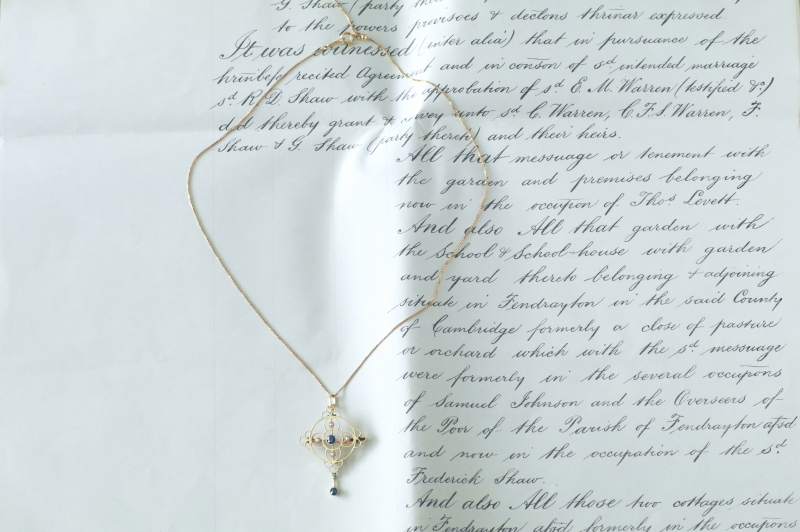 G. Shaw (party th
to the powers provisoes & declons thrinar expressed.
It was witnessed (inter alia) that in pursuance of the
hrinbefe recited Agreement and in conson of sd intended marriage
sd R. D. Shaw with the approbation of sd E. M. Warren (testified &c.)
did thereby grant & convey unto sd C. Warren, C. F. S. Warren, F.
Shaw & G. Shaw (party thereto) and their heirs.
All that messuage or tenement with
the garden and premises belonging
now in the occupion of Thos Levett.
And also All that garden with
the School & School-house with garden
and yard thereto belonging & adjoining
situate in Fendrayton in the said County
of Cambridge formerly a close of pasture
or orchard which with the sd messuage
were formerly in the several occupions
of Samuel Johnson and the Overseers of
the Poor of the Parish of Fendrayton afsd
and now in the occupation of the sd
Frederick Shaw.
And also All those two cottages situate
in Fendrayton afsd formerly in the occupions